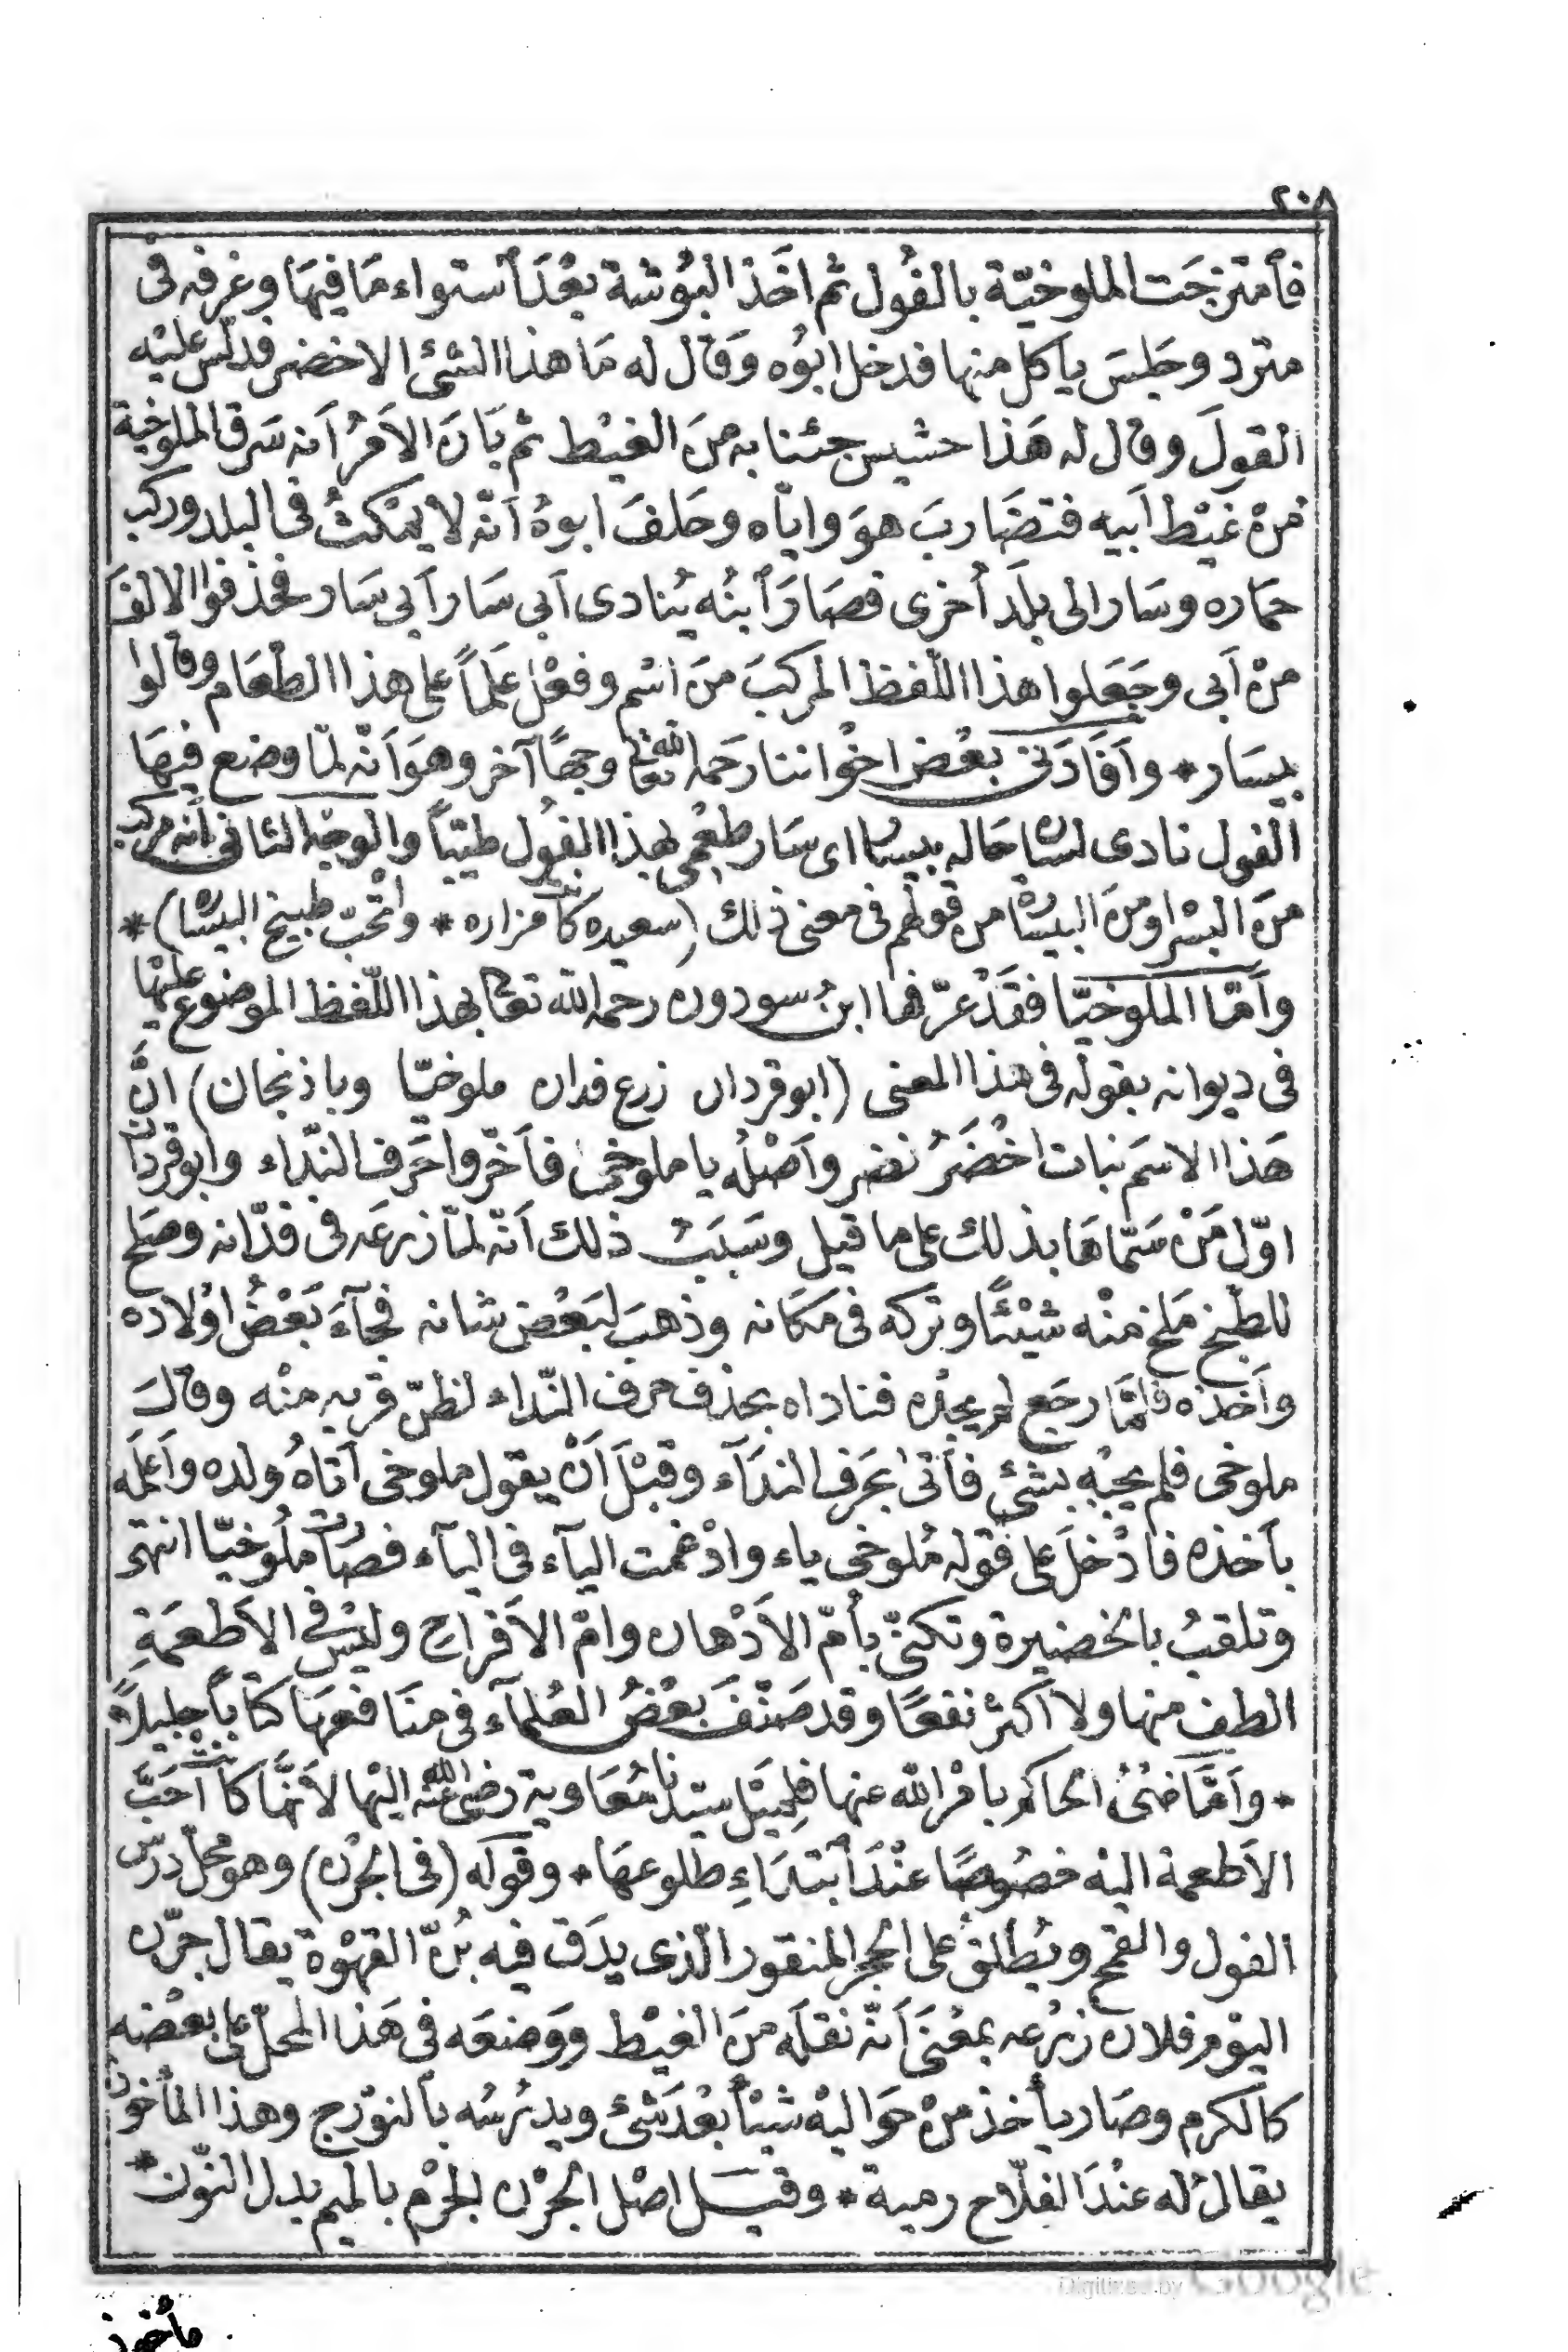 ٢٠٨
فٱمتزجَت الملوخيّة بالفُول ثم اخَذ البُوشة بعْدَ ٱستواء مَا فيهَا وغرفه فى
مترد وجَلسَ ياكل منها فدخل ابوُه وَقال له مَا هذا الشئ الاخضر فدلّس عليْه
القولَ وقال له هَذا حشيس جئنا به منَ الغيْط ثم بَانَ الاَمرُ اَنه سَرق الملوخية
منْ غيْط اَبيه فتضَاربَ هوَ واياه وحَلفَ ابوهُ اَنّه لا يمَكثُ فى البلد وركب
حمَاره وسَار الى بلَد اُخرى فصَارَ ٱبنُه يُنادى اَبى سَار اَبى سَار فحَذفوا الالفَ
منْ اَبى وجَعَلوا هذا اللّفظ المركبَ منَ اسْم وفعْل عَلَماً على هذا الطعَام وقالوا
بيسَار * وَاَفَادَنى بعْض اخْواننا رَحمه الله تعالى وجهًا آخر وهوَ اَنّه لمّا وضع فيهَا
الفول نادى لسان حَاله بيسار اى سَار طعْمى بهذا الفُول طيّباً والوجْه الثانى اَنه مركب
منَ البسْر اومنَ البيسار من قولهم فى معنى ذلك (سعيده كانت مزاره * واتحْبّ طبيخ البيسار) *
واَمّا الملَوُخيّا فقَدْ عرّفها ابنُ سودون رحمه الله تعالى بهذا اللّفظ الموضوع عليْها
فى ديوانه بقوله فى هذا المعنى (ابوقردان زرع فدان ملوخيّا وباذنجان) انَّ
هَذا الاسَم نبات اخْضَرُ نضر واَصْلُه يا ملوخى فاَخّروا حَرف النّداء وابوقردان
اوّل مَنْ سَمّاهَا بذلك على ما قيل وسَبَبُ ذلك اَنّه لمّا زرعَه فى فدّانه وصَلح
للطبْخ مَلخ منْه شيْئًا وتركه فى مَكَانه وذهبَ لبَعْض شانه فجَآءَ بَعْضُ اوْلاده
واَخذه فلمَّا رجَع لم يجدْه فناداه بحذف حرف النّداء لظنّ قربه منْه وقالَ
ملوخى فلم يجبْه بشئ فأتى بحَرف الندَآء وقبْلَ اَنْ يقول ملوخى اَتاهُ ولده واَعلَمه
باَخذه فادْخَل على قوله مُلوخى ياء وادْغمت اليآء فى اليآء فصَارت مُلوخيّا انتهى
وتلقبُ بالخضيرة وتكنىّ بأمّ الاَدْهان وامّ الاَفراح وليْس فى الاَطعمَةِ
الطف منها ولا اَكثرُ نفعًا وقد صَنّفَ بَعْضُ العُلمآء فى منَافعهَا كتاباً جليلاً
* واَمَّا ضنُى الحاكم بامْر الله عنها فلمِيْل سيّدنا مُعَاوية رضى الله عنْه اليْها لاَنَّها كانت اَحَبَّ
الاَطعمة اليْه خصُوصًا عنْدَ ٱبتدَاءِ طلوعهَا * وقَوله (فى الجُرْن) وهو محلّ درس
الفول والقمح ويُطلق على الحجر المنقور الّذى يدَق فيه بُنّ القهْوة يقال جرّن
اليوْم فلان زرْعه بمعْنىَ اَنّه نقلَه منَ الغيْط ووَضعَه فى هَذا المحلّ على بعْضه
كالكرم وصَار يأخذ منْ حوَاليْه شيْئاً بعْدَ شئ ويدرُسُه باَلنوْرج وهذا المأخوذ
يقالُ له عنْدَ الفلّاح رمية * وقيَـل اصْل الجُرْن الجرْم بالميم بدل النّون *
مأخوذ
Digitized by Google